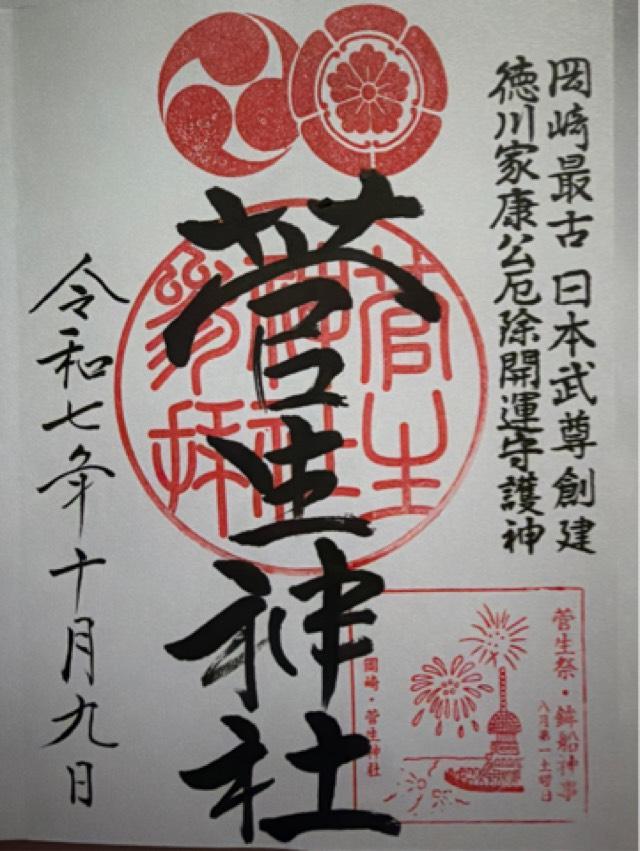 岡崎最古 日本武尊創建
徳川家康公厄除開運守護神
菅生神社
菅生
神社
参拝
令和七年十月九日
菅生祭・鉾船神事
八月第一土曜日
岡崎・菅生神社